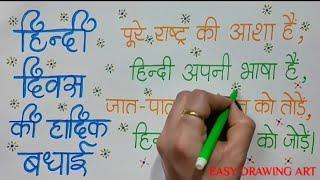 हिन्दी
दिवस
की हार्दिक
बधाई
पूरे राष्ट्र की आशा है,
हिन्दी अपनी भाषा है,
जात-पात को तोड़े,
को जोड़ें।
EASY DRAWING ART